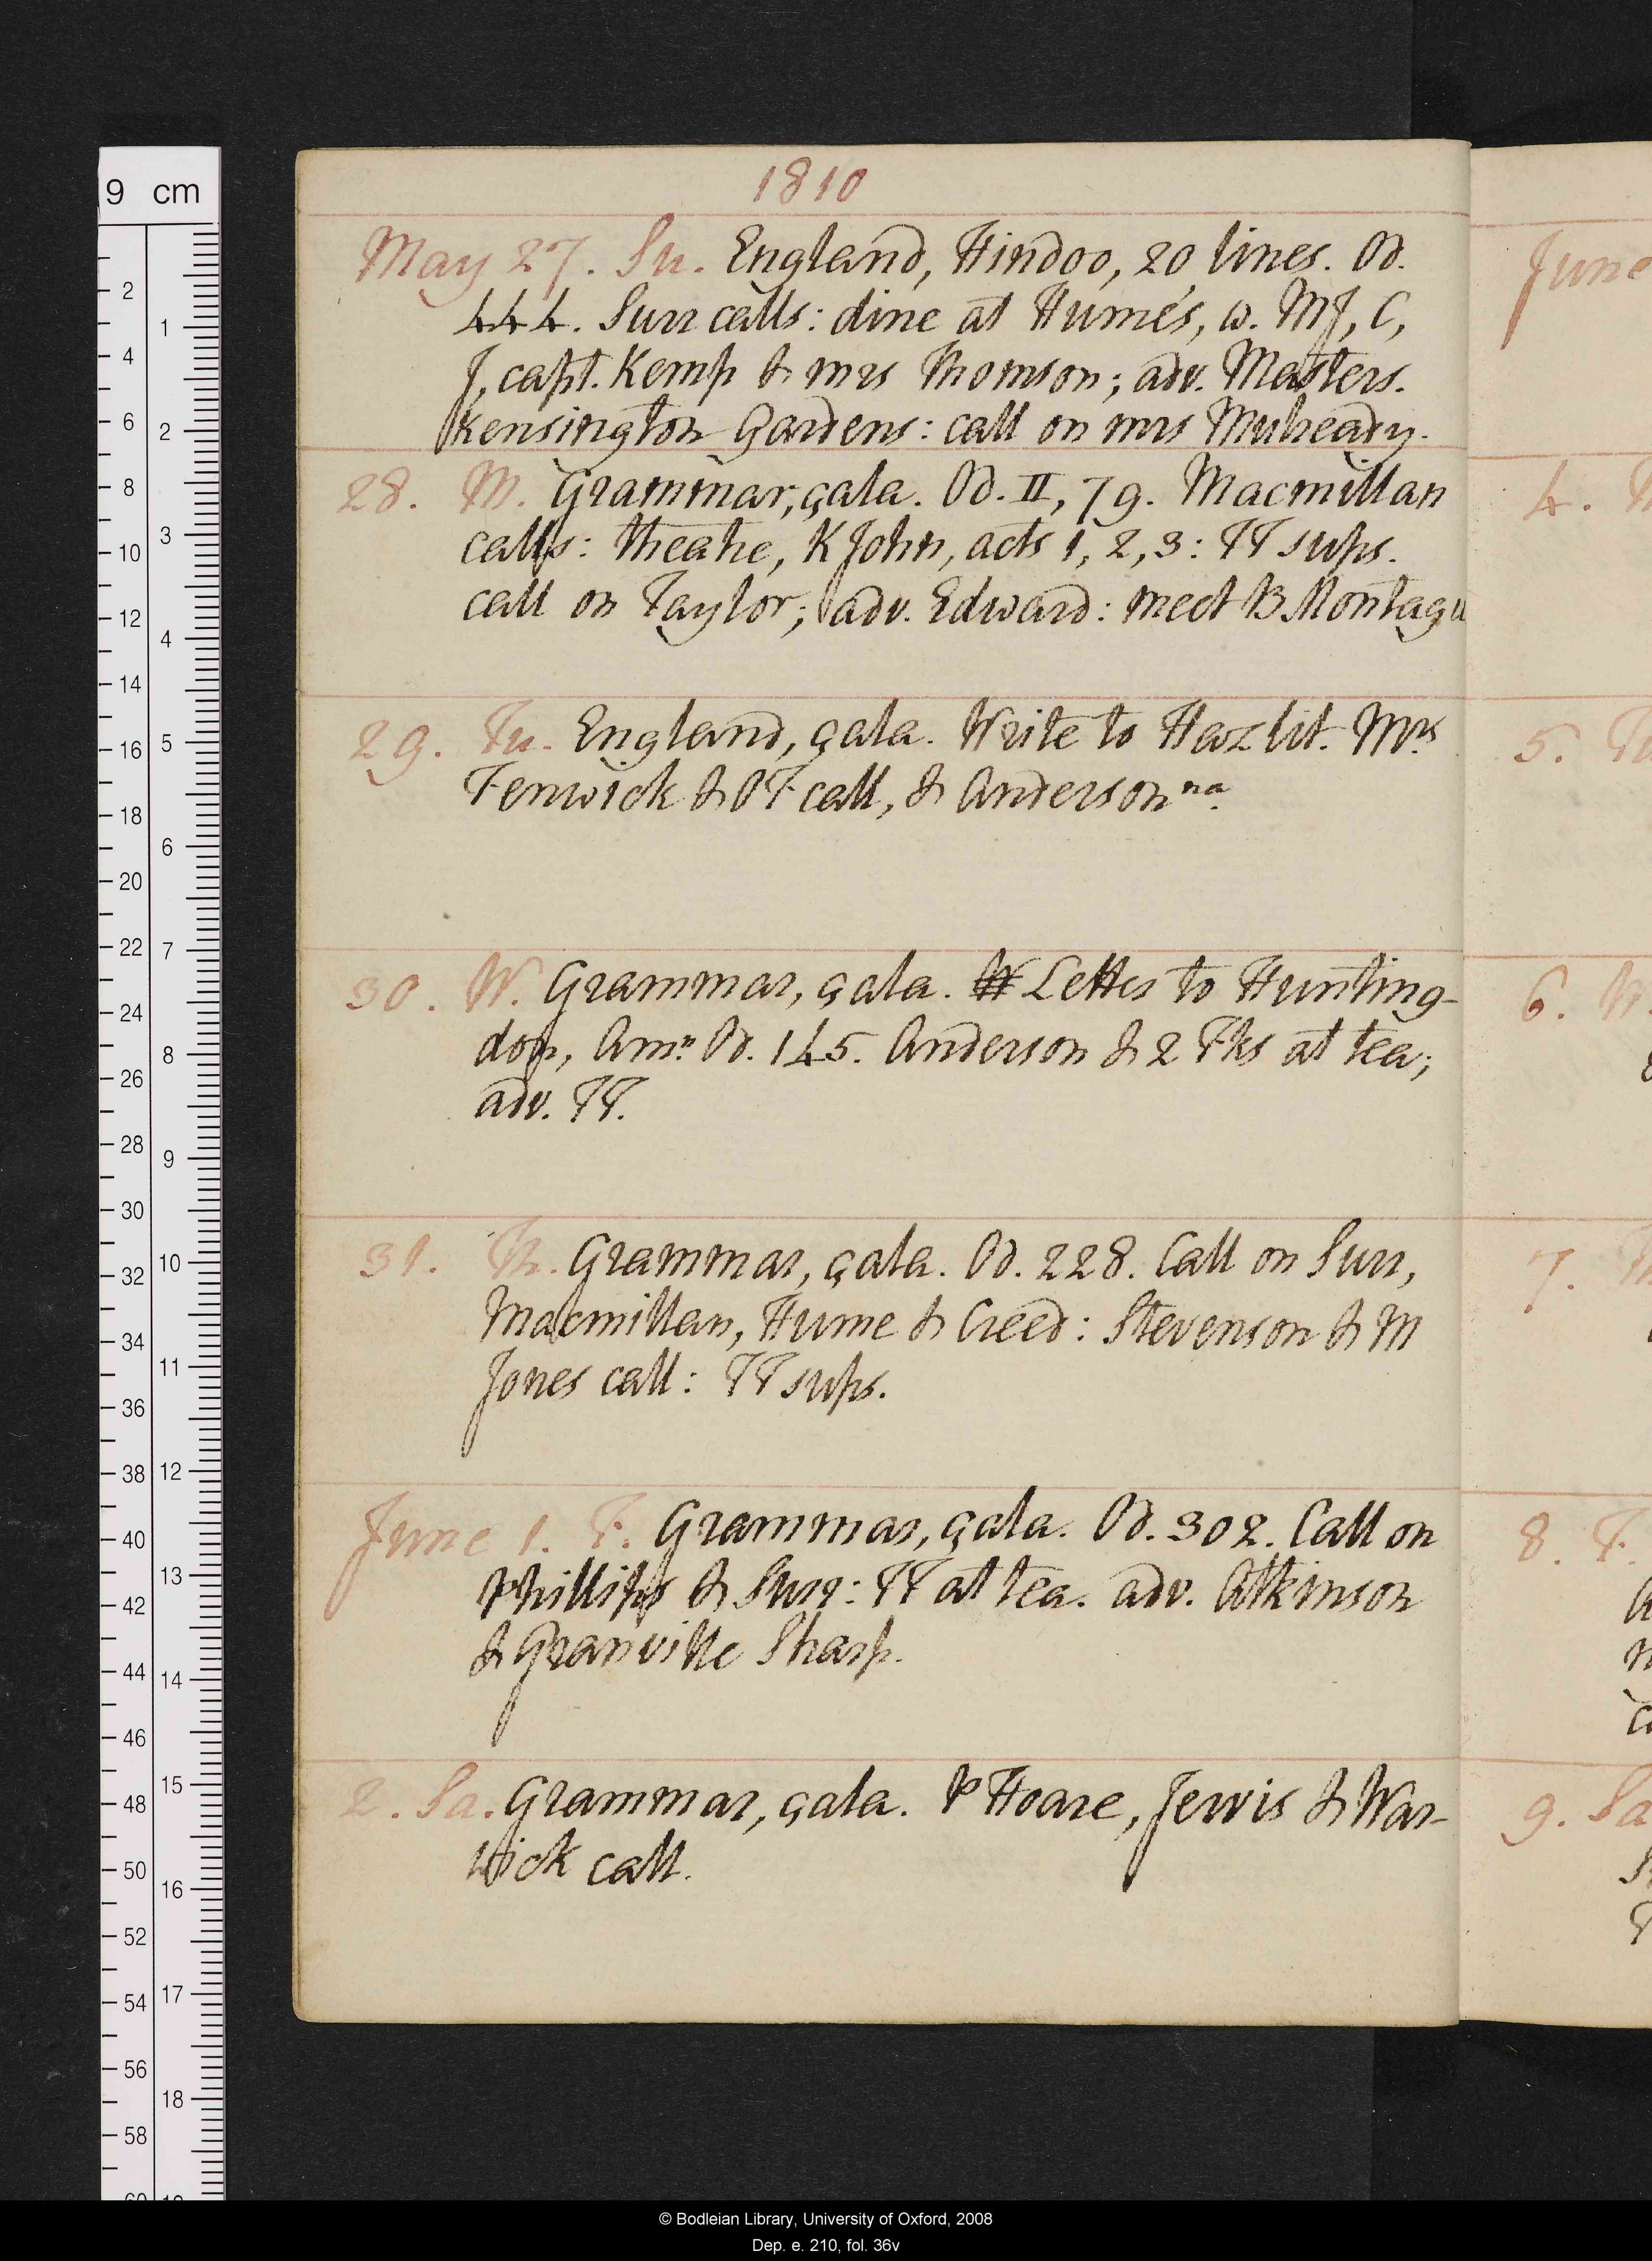 1810
May 27. Su. England, Hindoo, 20 lines. Od.
444. Surr calls: dine at Hume's, w. MJ, C,
J, capt. Kemp & mrs Thomson; adv. Masters.
Kensington Gardens: call on mrs Mulready.
28. M. Grammar, çala. Od. II, 79. Macmillan
calls: theatre, K John, acts 1, 2, 3: TT sups.
call on Taylor; adv. Edward: meet B Montagu
29. Tu. England, çala. Write to Hazlit. Mrs
Fenwick & OF call, & Anderson na.
30. W. Grammar, çala. W Letter to Hunting-
don, Amn. Od. 145. Anderson & 2 Fks at tea;
adv. TT.
31. Th. Grammar, çala. Od. 228. Call on Surr,
Macmillan, Hume & Creed: Stevenson & M
Jones call: TT sups.
June 1. F. Grammar, çala. Od. 302. Call on
Phillips & Surr: TT at tea. adv. Atkinson
& Granville Sharp.
2. Sa. Grammar, çala. P Hoare, Jervis & War-
wick call.
June
4. M
5. Tu
6. W
7. Th
8. F.
9. Sa
9 cm
2
4
6
8
10
12
14
16
18
20
22
24
26
28
30
32
34
36
38
40
42
44
46
48
50
52
54
56
58
60
1
2
3
4
5
6
7
8
9
10
11
12
13
14
15
16
17
18
19
© Bodleian Library, University of Oxford, 2008
Dep. e. 210, fol. 36v